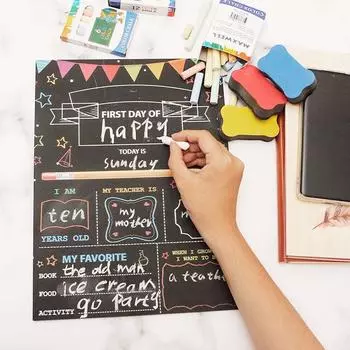 COLOR CHALK
MAXWELL
FIRST DAY OF
happy
TODAY IS
sunday
I AM
MY TEACHER IS
ten
my
mother
YEARS OLD
WHEN I GROW
I WANT TO BE
MY FAVORITE
BOOK the old man
FOOD ice cream
ACTIVITY go party
a teacher